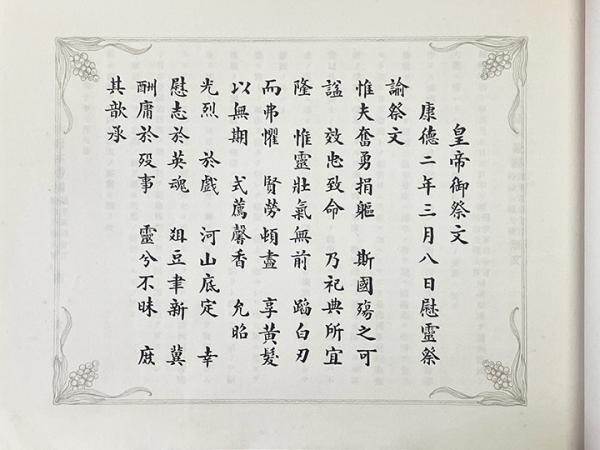 皇帝御祭文
康德二年三月八日慰靈祭
諭祭文
惟夫奮勇捐軀 斯國殤之可
諡 效忠致命 乃祀典所宜
隆 惟靈壯氣無前 蹈白刃
而弗懼 賢勞頓盡 享黃髮
以無期 式薦馨香 允昭
光烈 於戲 河山底定 幸
慰志於英魂 俎豆聿新 冀
酬庸於歿事 靈兮不昧 庶
其歆承